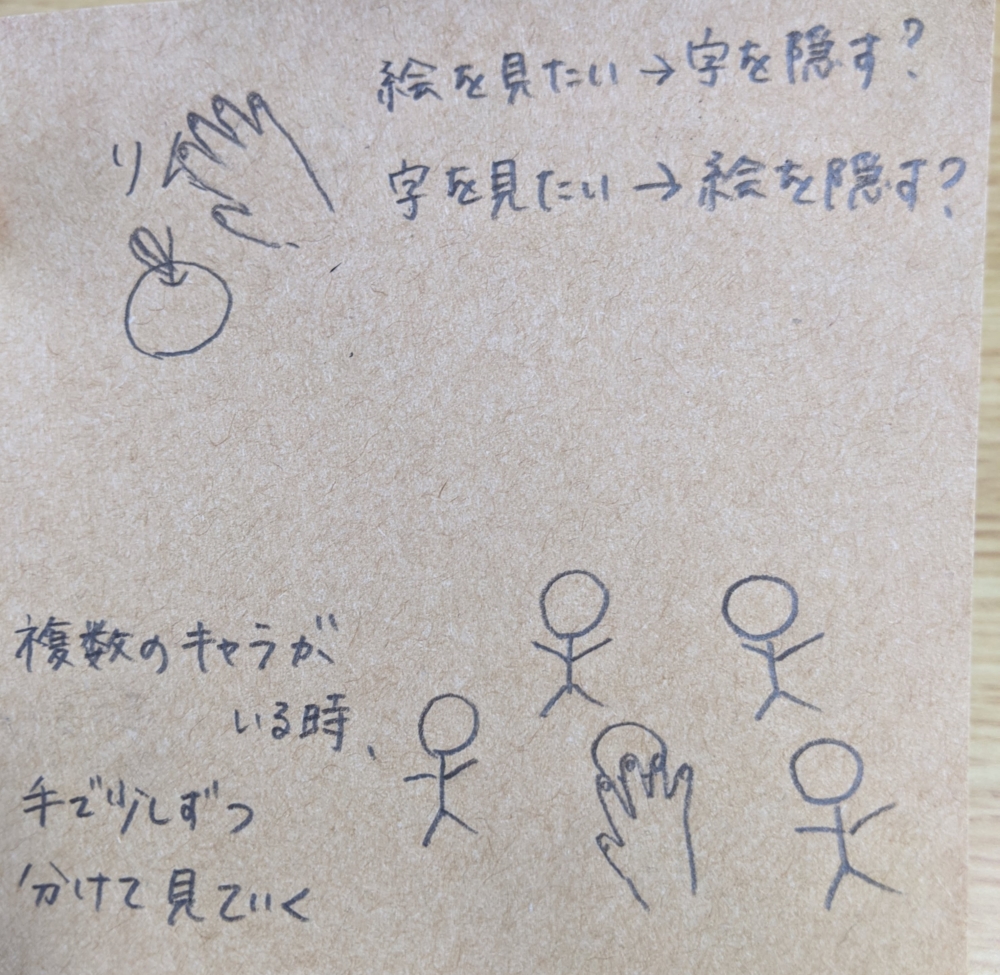 絵を見たい→字を隠す?
リ
字を見たい→絵を隠す?
複数のキャラが
いる時、
手で少しずつ
分けて見ていく